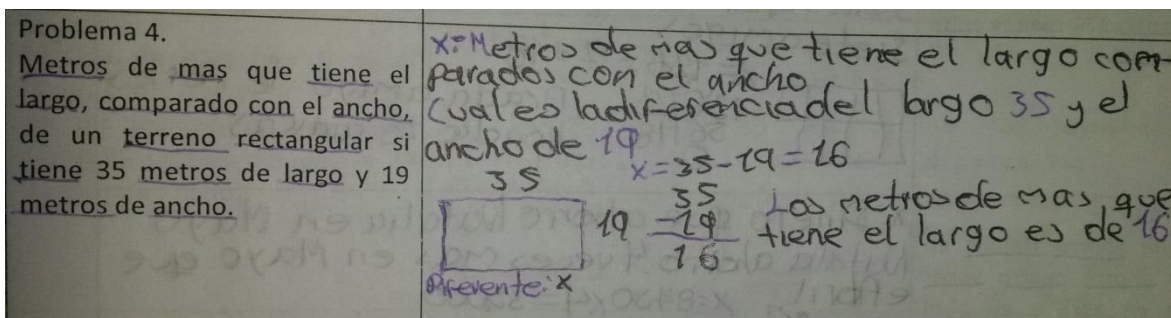 Problema 4.
Metros de mas que tiene el
largo, comparado con el ancho,
de un terreno rectangular si
tiene 35 metros de largo y 19
metros de ancho.
x: Metros de mas que tiene el largo com-
parados con el ancho
Cual es la diferencia del largo 35 y el
ancho de 19
x=35-19=16
35
19
35
-19
16
Los metros de mas que
tiene el largo es de 16
x